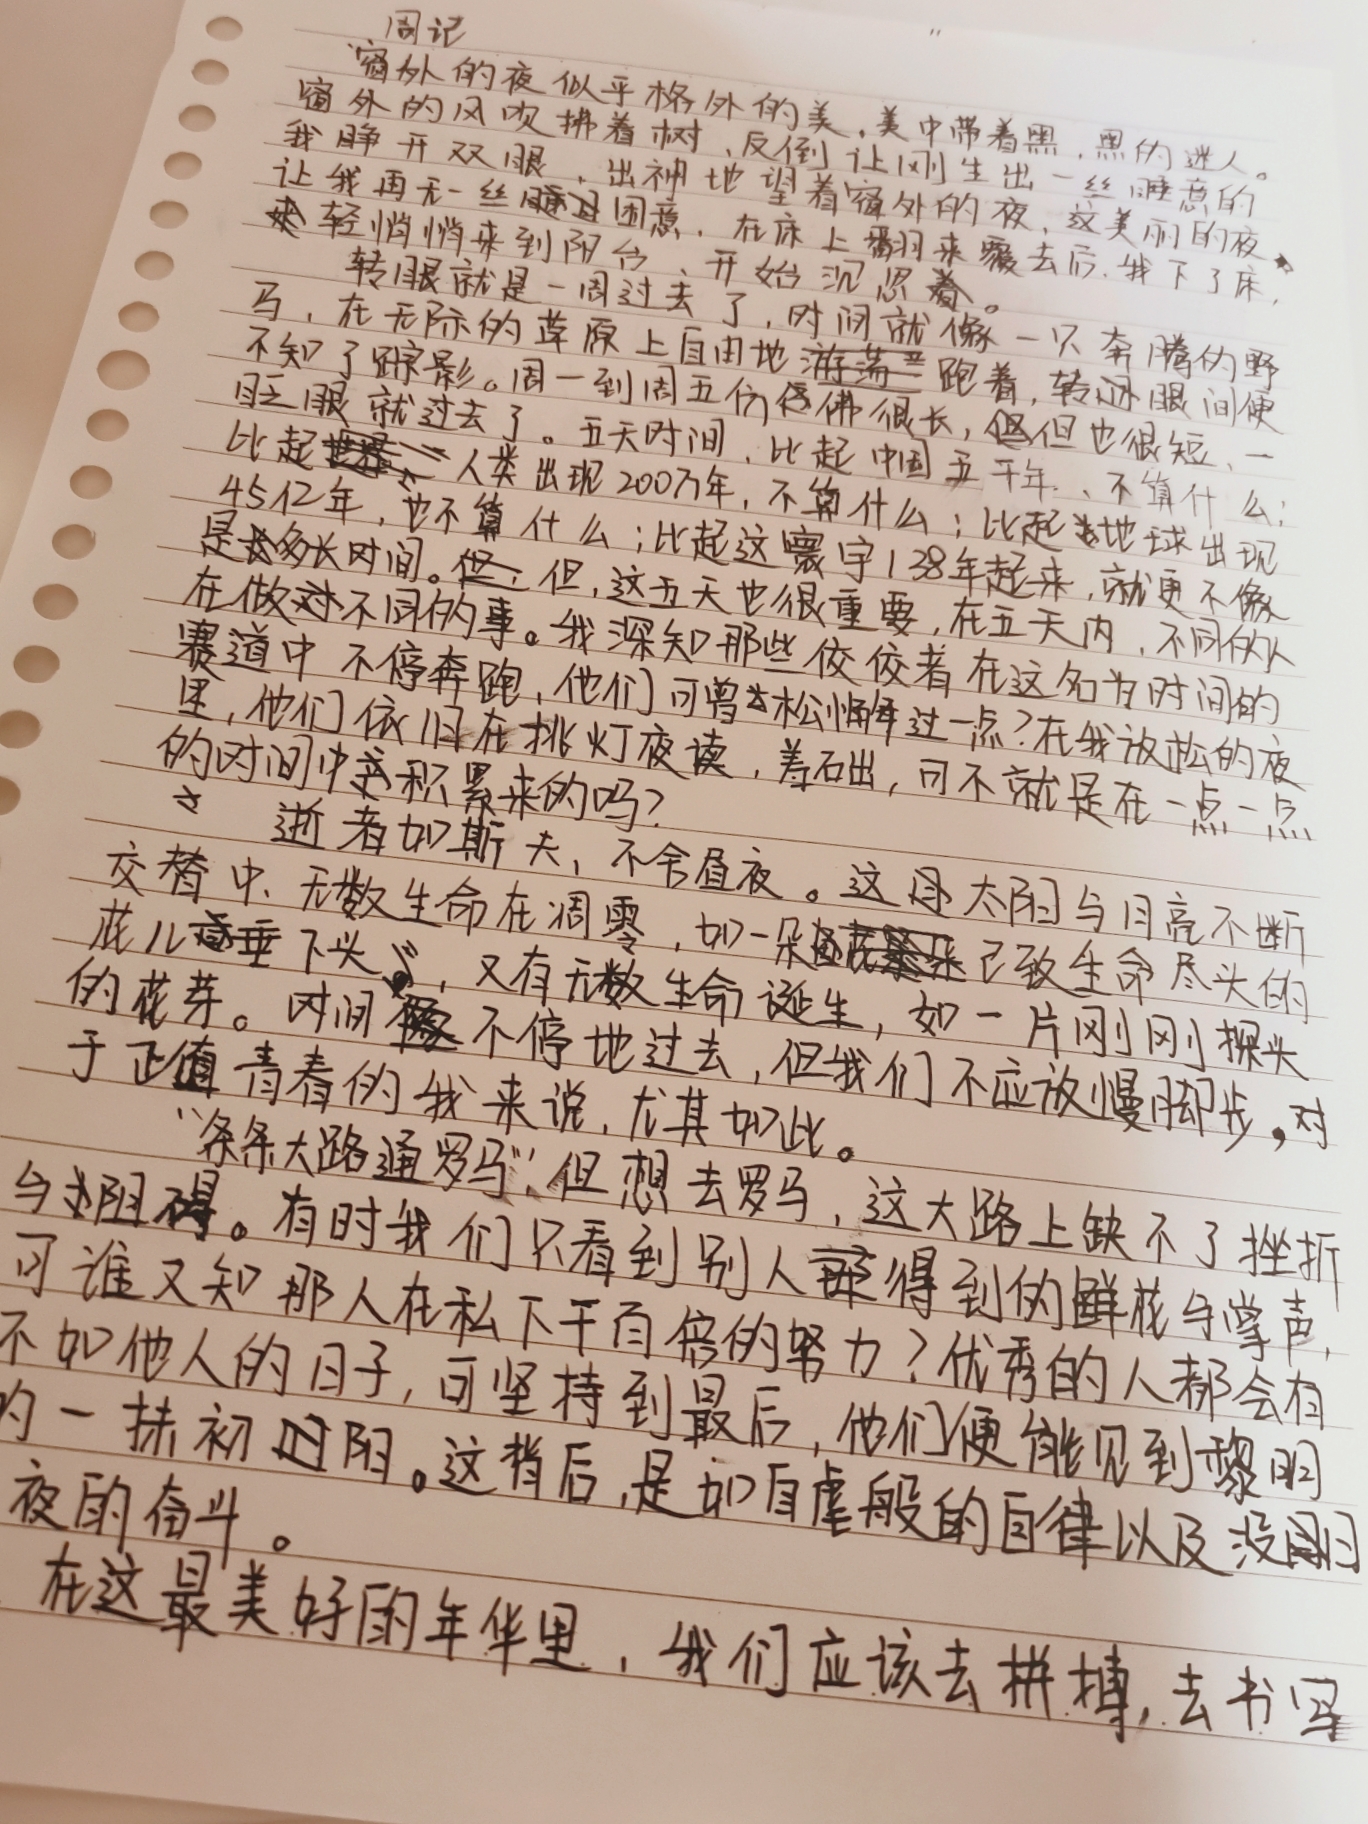 周记
窗外的夜似乎格外的美,美中带着黑,黑的迷人。
窗外的风吹拂着树、反倒让刚生出一丝睡意的
我睁开双眼,出神地望着窗外的夜,这美丽的夜
让我再无一丝困意,在床上翻来覆去后,我下了床,
轻悄悄来到阳台,开始沉思着。
转眼就是一周过去了,时间就像一只奔腾的野
马,在无际的草原上自由地跑着,转眼间便
不知了踪影。周一到周五仿佛很长,但也很短,一
眨眼就过去了。五天时间,比起中国五千年、不算什么;
比起人类出现200万年,不算什么;比起地球出现
45亿年,也不算什么;比起这寰宇138年起来,就更不像
是多长时间。但,这五天也很重要,在五天内,不同的人
在做对不同的事。我深知那些佼佼者在这名为时间的
赛道中不停奔跑,他们可曾松懈过一点?在我放松的夜
里,他们依旧在挑灯夜读,差石出,可不就是在一点一点
的时间中积累来的吗?
逝者如斯夫,不舍昼夜。这月太阳与月亮不断
交替中、无数生命在凋零,如一朵已致生命尽头的
花儿垂下头,又有无数生命诞生,如一片刚刚探头
的花芽。时间不停地过去,但我们不应放慢脚步,对
于正值青春的我来说,尤其如此。
“条条大路通罗马”,但想去罗马,这大路上缺不了挫折
与阻碍。有时我们只看到别人得到的鲜花与掌声,
可谁又知那人在私下千百倍的努力?优秀的人都会有
不如他人的日子,可坚持到最后,他们便能见到黎明
的一抹初阳。这背后,是如自虐般的自律以及没日
夜的奋斗。
在这最美好的年华里,我们应该去拼搏,去书写